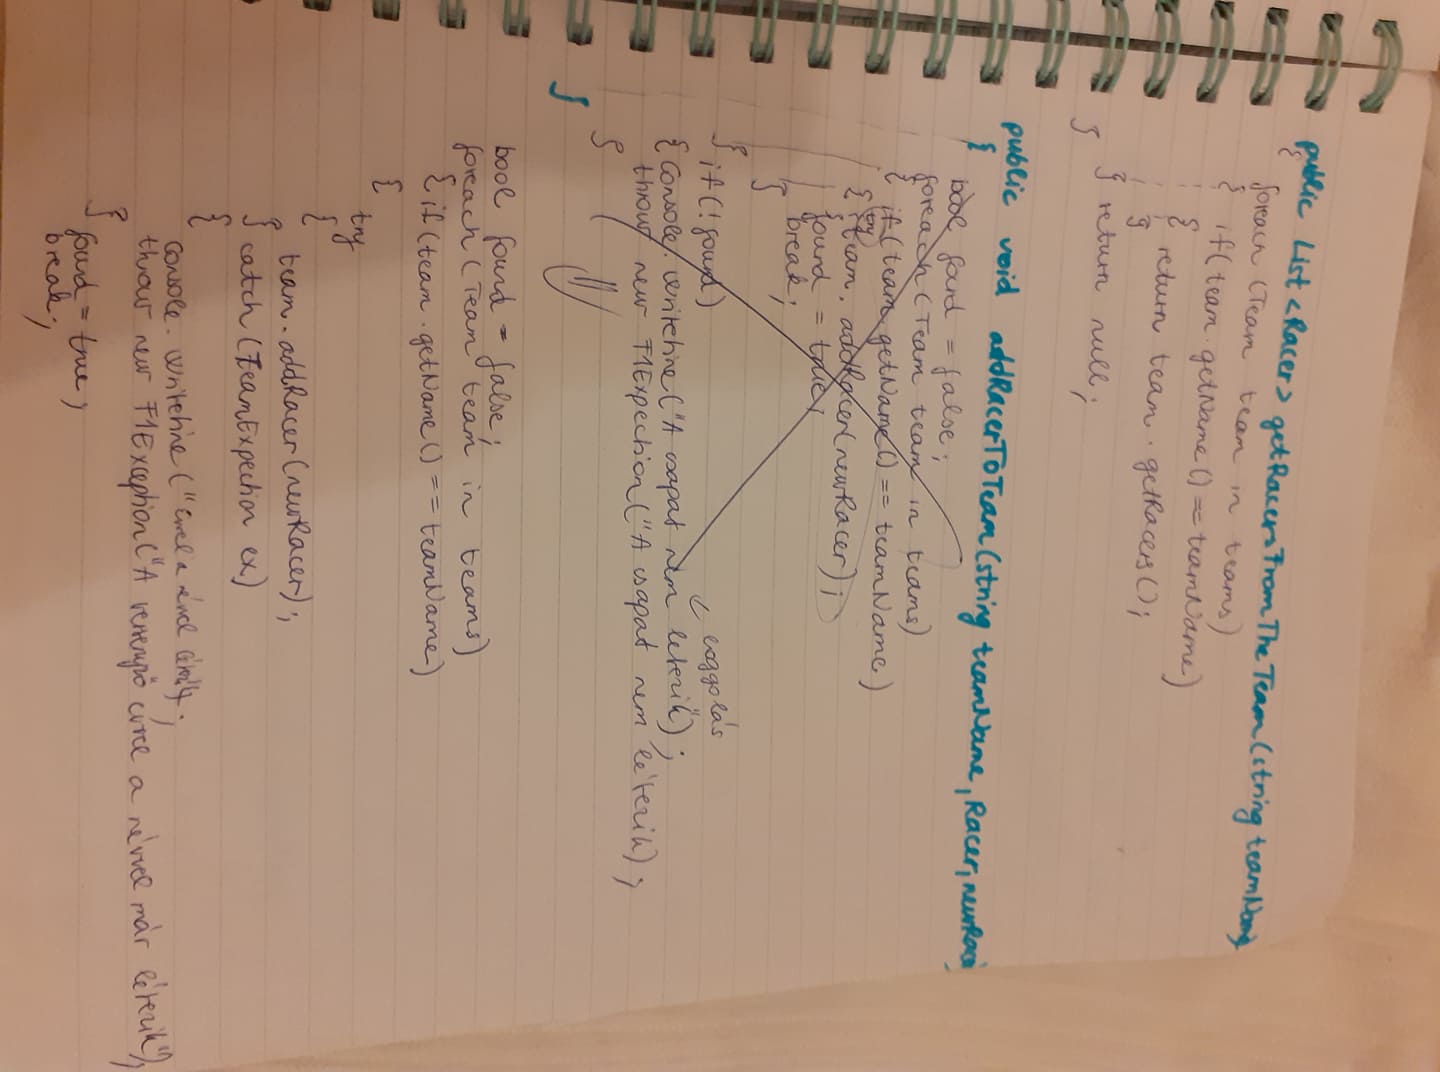 public List<Racer> getRacersFromTheTeam(string teamName)
{
foreach (Team team in teams)
{ if(team.getName() == teamName)
{ return team.getRacers();
}
} return null;
}
public void addRacerToTeam(string teamName, Racer, newRac
{
bool found = false;
foreach (Team team in teams)
{ if(team.getName() == teamName)
{ team.addRacer(newRacer);
found = true;
break;
}
} if(!found) loggolás
{ Console.writeline("A csapat nem létezik");
throw new F1Expection("A csapat nem létezik);
}
}
bool found = false;
foreach (Team team in teams)
{ if(team.getName() == teamName)
{
try
{
team.addRacer(newRacer);
} catch (TeamExpection ex)
{
Console.writeline("
throw new F1Exception("A versenyző ezzel a névvel már létezik");
} found = true;
break;